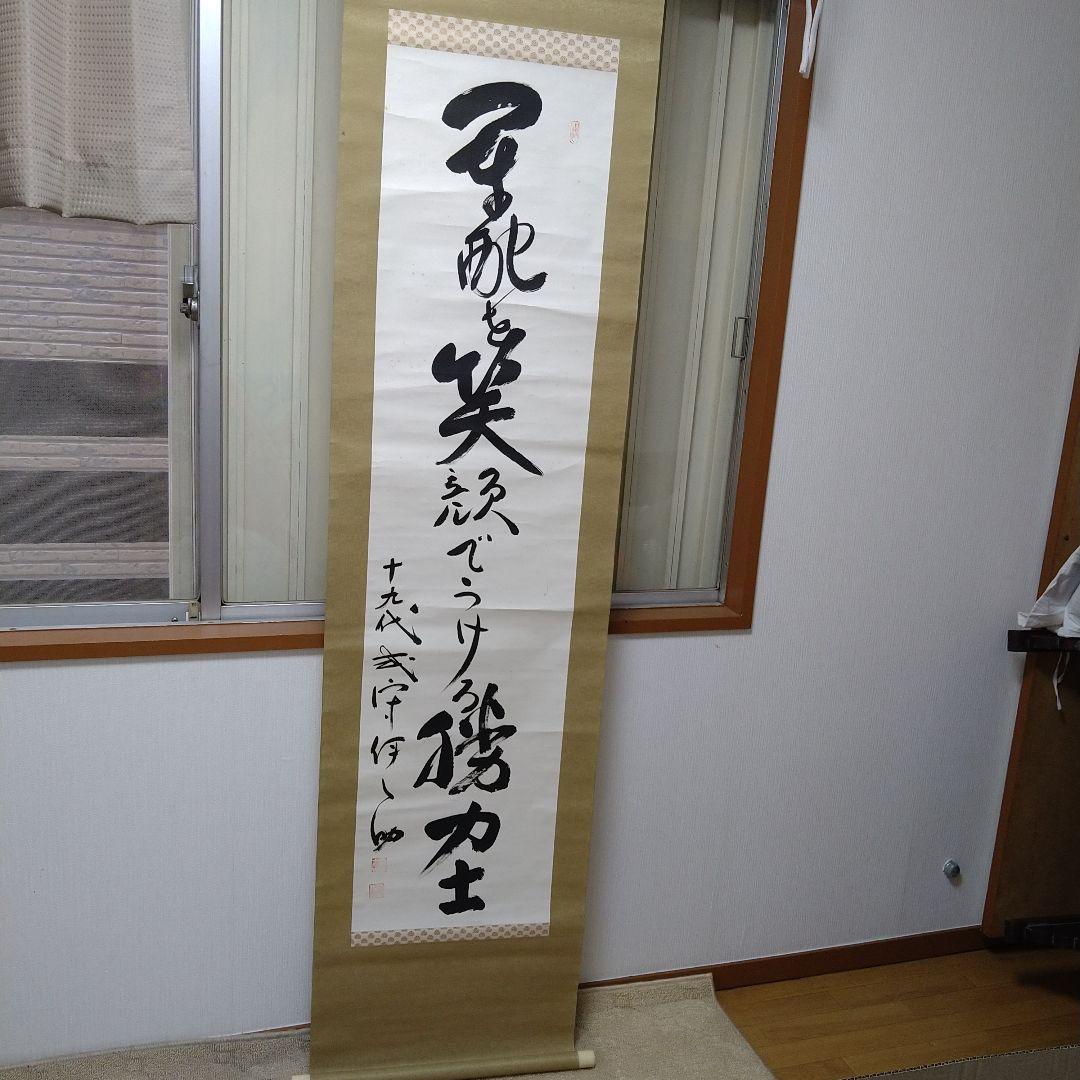 軍配を笑顔でうける勝力士
十九代式守伊之助